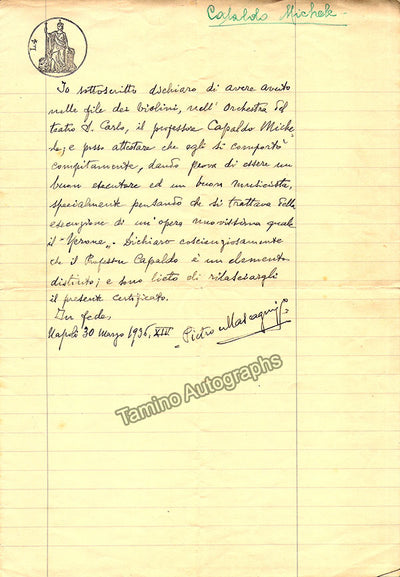 Capaldo Michele
L.4
Io sottoscritto dichiaro di avere avuto
nelle file dei violini, nell'Orchestra del
teatro S. Carlo, il professore Capaldo Miche-
le; e posso attestare che egli si comportò
compitamente, dando prova di essere un
buon esecutore ed un buon musicista,
specialmente pensando che si trattava della
esecuzione di un'opera nuovissima quale
il "Nerone". Dichiaro coscienziosamente
che il Professore Capaldo è un elemento
distinto; e sono lieto di rilasciargli
il presente certificato.
In fede
Napoli 30 marzo 1936, XIV
Pietro Mascagni
Tamino Autographs